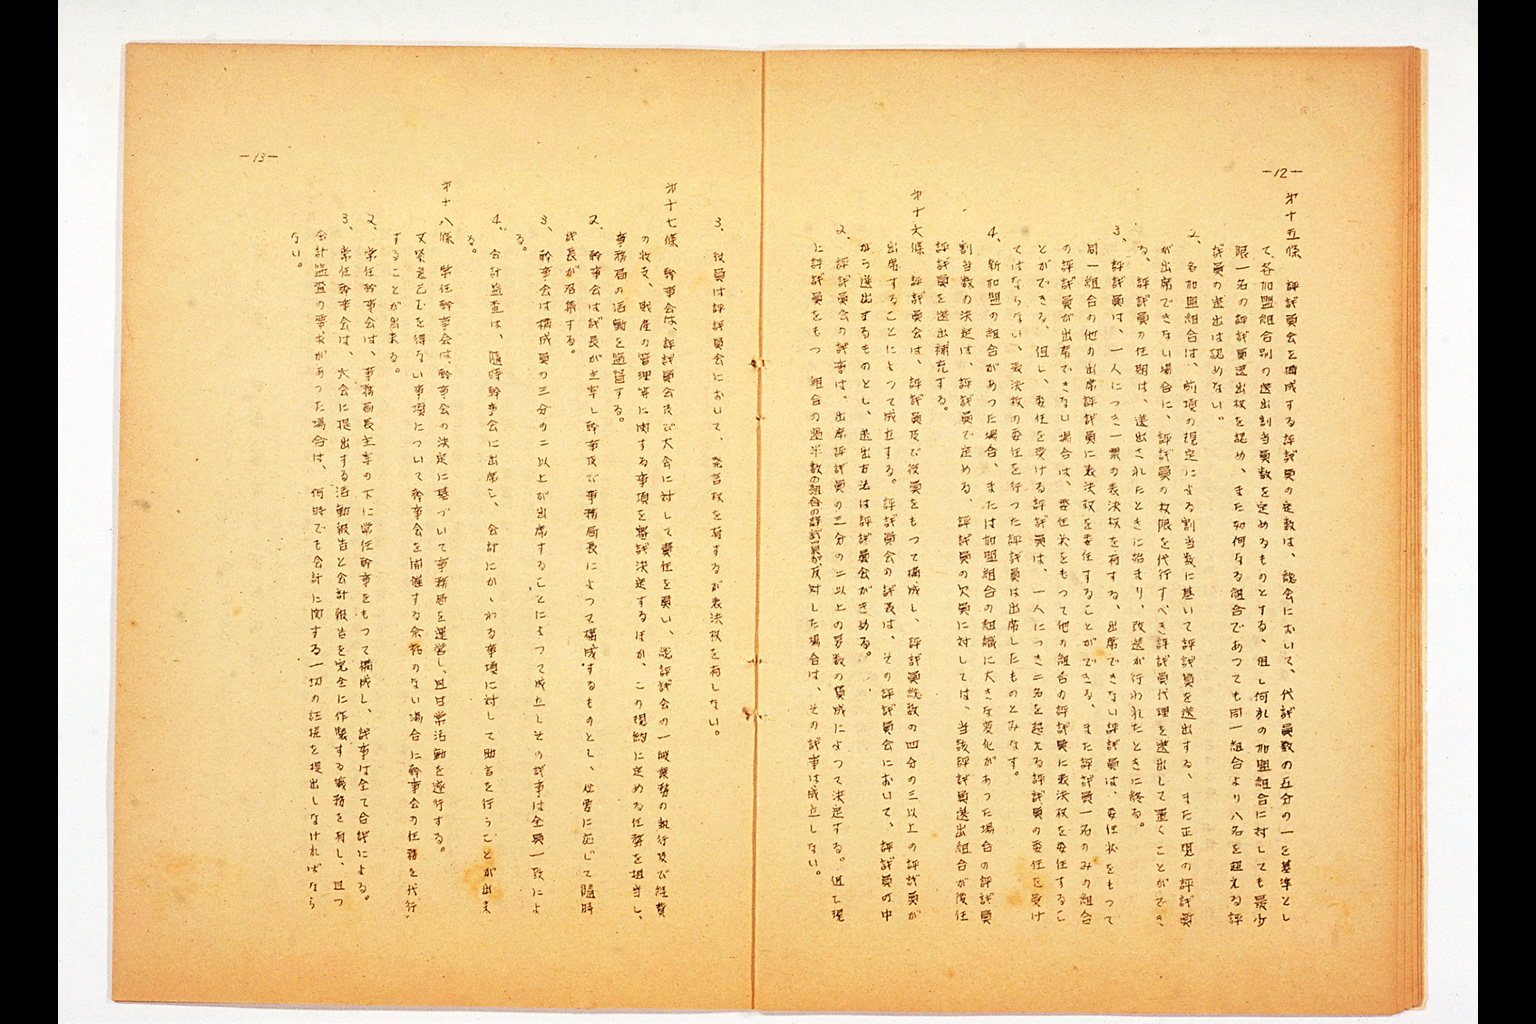 -12-
第十五條　評議員会を構成する評議員の定数は、総会において、代議員数の五分の一を基準とし
て、各加盟組合別の選出割当員数を定めるものとする、但し何れの加盟組合に対しても最少
限一名の評議員選出权を認め、また如何なる組合であつても同一組合より八名を超える評
議員の選出は認めない。
2、各加盟組合は、前項の規定による割当数に基いて評議員を選出する、また正規の評議員
が出席できない場合に、評議員の权限を代行すべき評議員代理を選出して置くことができ
る、評議員の任期は、選出されたときに始まり、改選が行われたときに終る。
3、評議員は、一人につき一票の表決权を有する、出席できない評議員は、委任状をもつて
同一組合の他の出席評議員に表決权を委任することができる、また評議員一名のみの組合
の評議員が出席できない場合は、委任状をもつて他の組合の評議員に表決权を委任するこ
とができる、但し、委任を受ける評議員は、一人につき二名を超える評議員の委任を受け
てはならない、表決权の委任を行つた評議員は出席したものとみなす。
4、新加盟の組合があつた場合、または加盟組合の組織に大きな変化があつた場合の評議員
割当数の決定は、評議員で定める、評議員の欠員に対しては、当該評議員選出組合が後任
評議員を選出補充する。
第十六條　評議員会は、評議員及び役員をもつて構成し、評議員総数の四分の三以上の評議員が
出席することによつて成立する。評議員会の議長は、その評議員会において、評議員の中
から選出するものとし、選出方法は評議員会がきめる。
2、評議員会の議事は、出席評議員の三分の二以上の多数の賛成によつて決定する。但し現
に評議員をもつ　組合の過半数の組合の評議員が反対した場合は、その議事は成立しない。
-13-
3、役員は評議員会において、発言权を有するが表決权を有しない。
第十七條　幹事会は、評議員会及び大会に対して責任を負い、総評議会の一般業務の執行及び経費
の収支、財産の管理等に関する事項を審議決定するほか、この規約に定める任務を担当し、
事務局の活動を監督する。
2、幹事会は議長が主宰し幹事及び事務局長によつて構成するものとし、必要に応じて随時
議長が召集する。
3、幹事会は構成員の三分の二以上が出席することによつて成立しその議事は全員一致によ
る。
4、会計監査は、随時幹事会に出席し、会計にかゝわる事項に対して助言を行うことが出来
る。
第十八條　常任幹事会は幹事会の決定に基づいて事務局を運営し、且日常活動を遂行する。
又緊急己むを得ない事項について幹事会を開催する余裕のない場合に幹事会の任務を代行
することが出来る。
2、常任幹事会は、事務局長主宰の下に常任幹事をもつて構成し、議事は全て合議による。
3、常任幹事会は、大会に提出する活動報告と会計報告を完全に作製する義務を有し、且つ
会計監査の要求があつた場合は、何時でも会計に関する一切の証拠を提出しなければなら
ない。